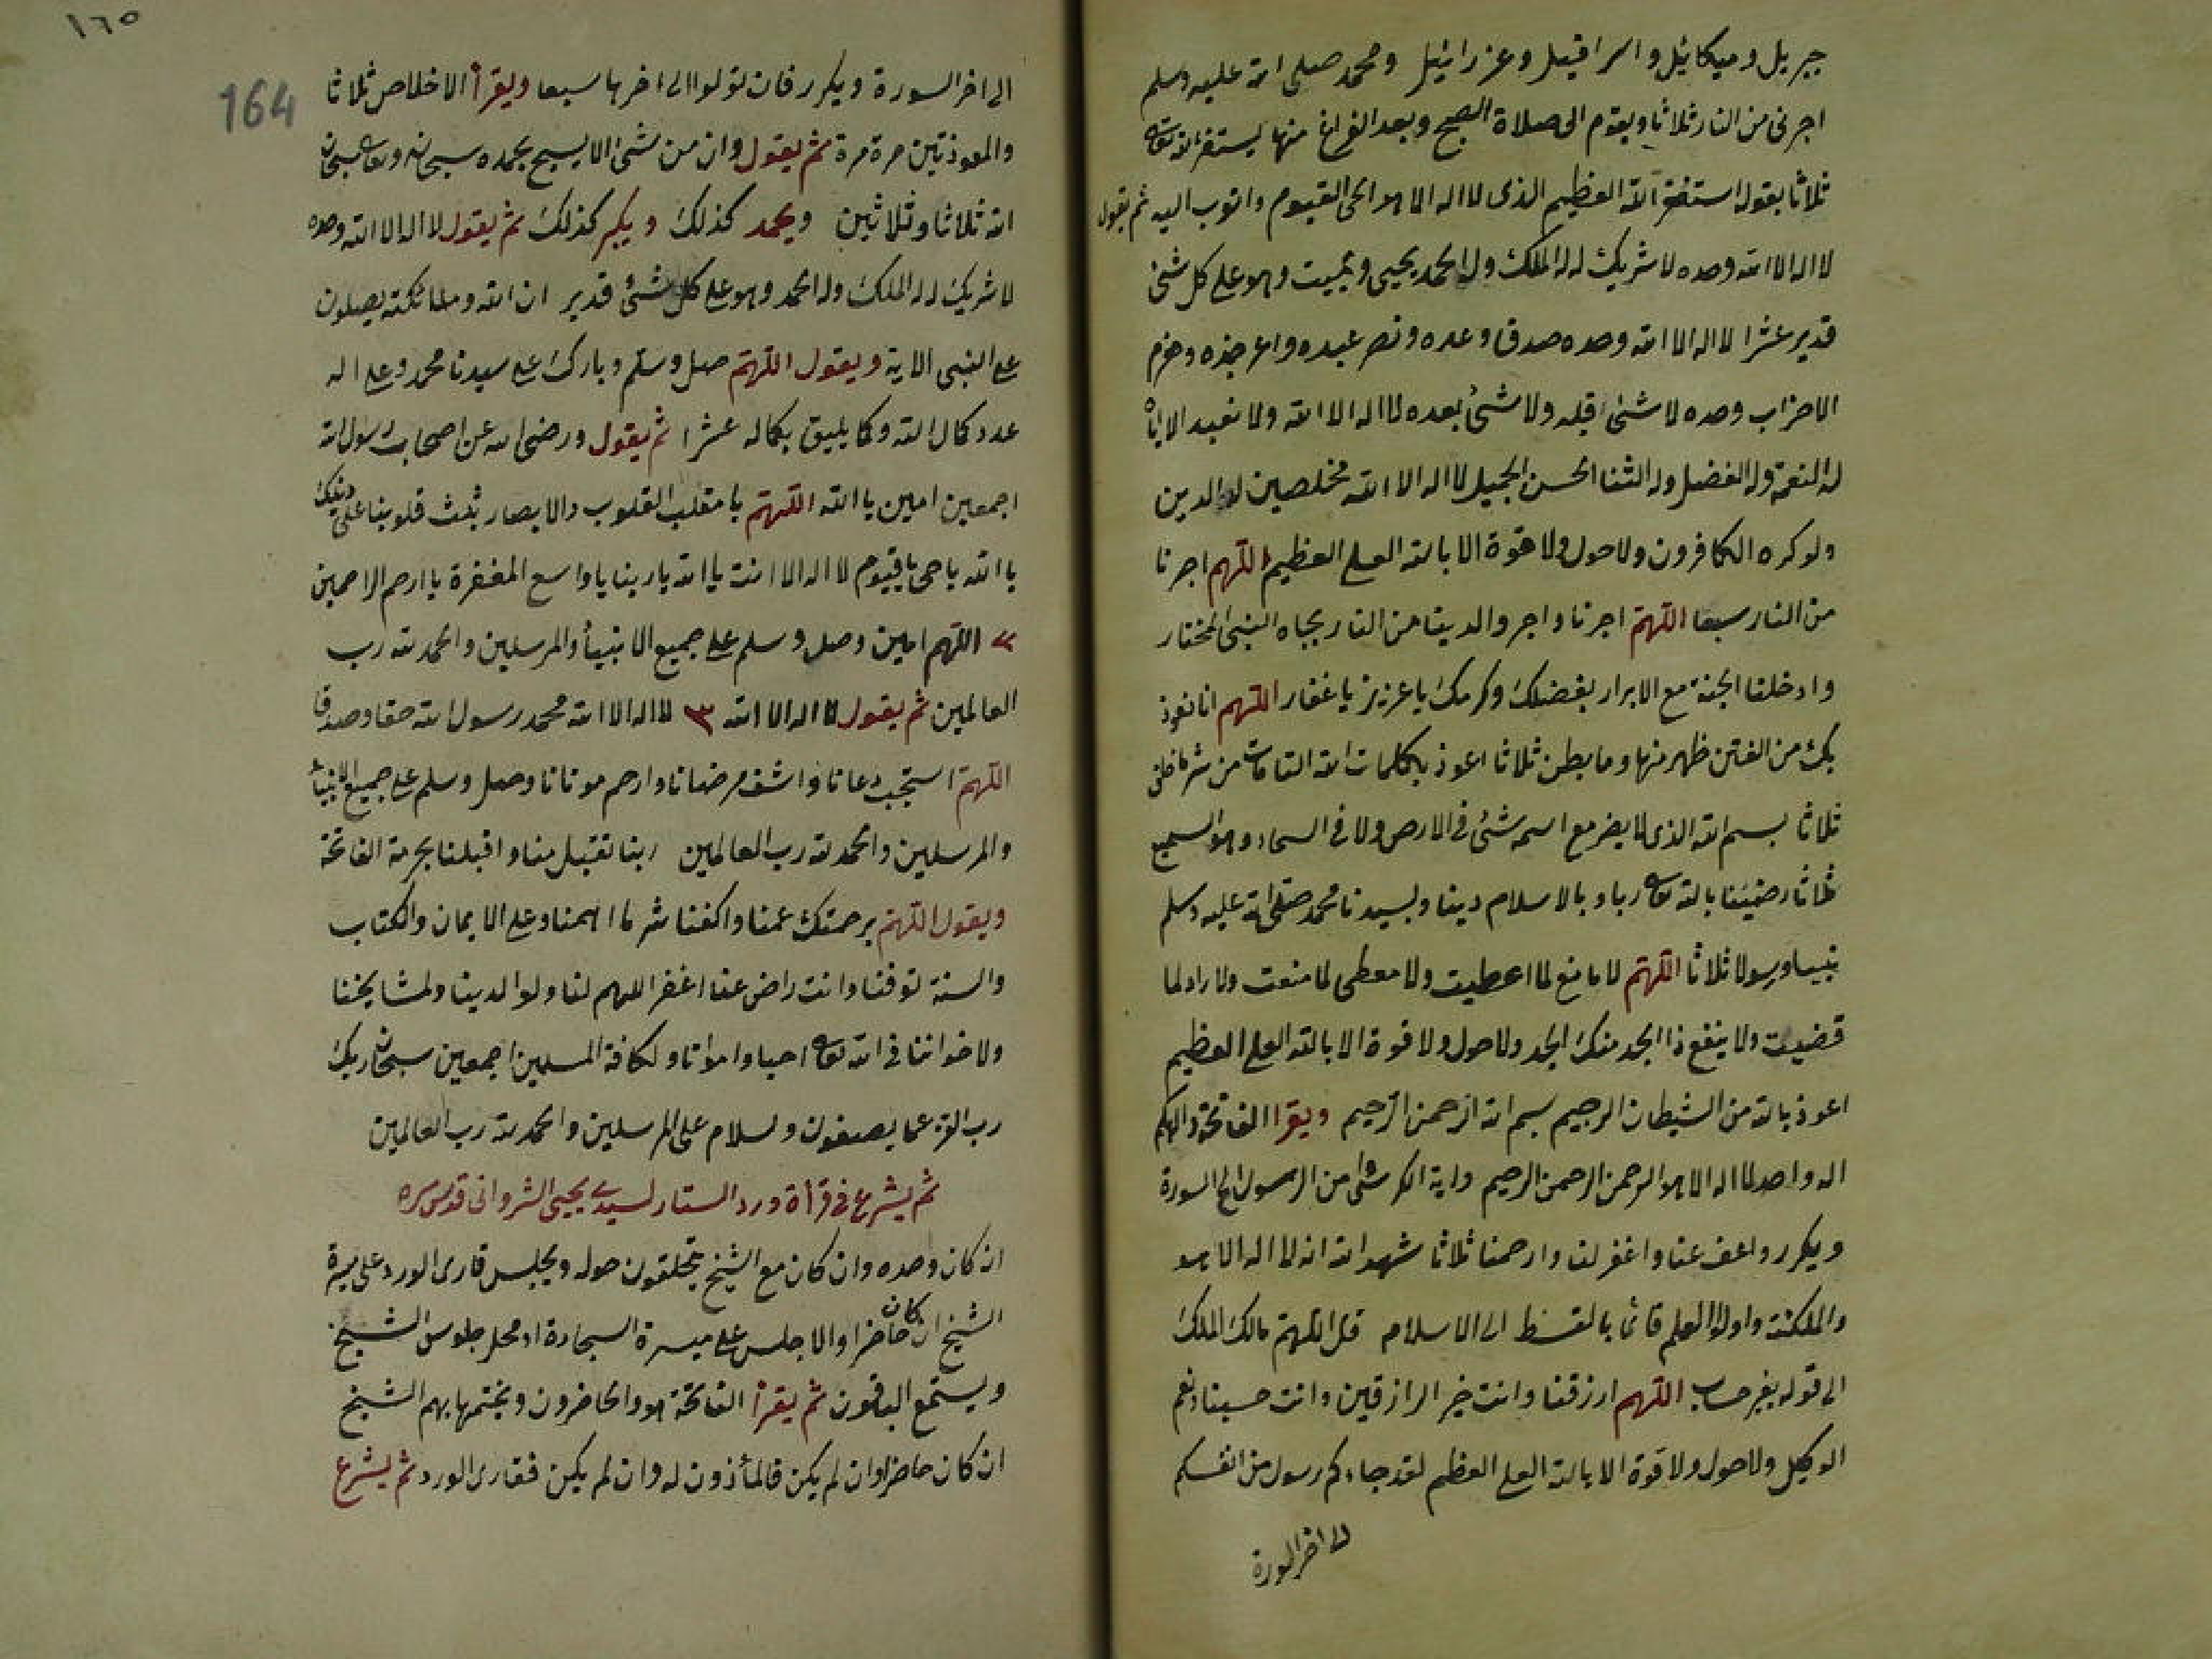 جبريل وميكائيل واسرافيل وعزرائيل ومحمد صلى الله عليه وسلم
اجرنى من النار ثلاثا ويقوم الى صلاة الصبح وبعد الفراغ منها يستغفر الله تعالى
ثلاثا بقوله استغفر الله العظيم الذى لا اله الا هو الحى القيوم واتوب اليه ثم يقول
لا اله الا الله وحده لا شريك له له الملك وله الحمد يحيى ويميت وهو على كل شئ
قدير عشرا لا اله الا الله وحده صدق وعده ونصر عبده واعز جنده وهزم
الاحزاب وحده لا شئ قبله ولا شئ بعده لا اله الا الله ولا نعبد الا اياه
له النعمة وله الفضل وله الثنا الحسن الجميل لا اله الا الله مخلصين له الدين
ولو كره الكافرون ولا حول ولا قوة الا بالله العلى العظيم اللهم اجرنا
من النار سبعا اللهم اجرنا واجر والدينا من النار بجاه النبى المختار
وادخلنا الجنة مع الابرار بفضلك وكرمك يا عزيز يا غفار اللهم انا نعوذ
بك من الفتن ظهر منها وما بطن ثلاثا اعوذ بكلمات الله التامات من شر ما خلق
ثلاثا بسم الله الذى لا يضر مع اسمه شئ فى الارض ولا فى السماء وهو السميع
ثلاثا رضينا بالله تعالى ربا وبالاسلام دينا وبسيدنا محمد صلى الله عليه وسلم
نبيا ورسولا ثلاثا اللهم لا مانع لما اعطيت ولا معطى لما منعت ولا راد لما
قضيت ولا ينفع ذا الجد منك الجد ولا حول ولا قوة الا بالله العلى العظيم
اعوذ بالله من الشيطان الرجيم بسم الله الرحمن الرحيم ويقرا الفاتحة والهكم
اله واحد لا اله الا هو الرحمن الرحمن الرحيم واية الكرسى امن الرسول الى السورة
ويكرر واعف عنا واغفر لنا وارحمنا ثلاثا شهد الله انه لا اله الا هو
والملئكة واولوا العلم قائما بالقسط الى الاسلام قل اللهم مالك الملك
الى قوله بغير حساب اللهم ارزقنا وانت خير الرازقين وانت حسبنا ونعم
الوكيل ولا حول ولا قوة الا بالله العلى العظيم لقد جاءكم رسول من انفسكم
الى اخر السورة
١٦٥
164
الى اخر السورة ويكرر فان تولوا الى اخرها سبعا ويقرأ الاخلاص ثلاثا
والمعوذتين مرة مرة ثم يقول وان من شئ الا يسبح بحمده سبحانه وتعالى سبحان
الله ثلاثا وثلاثين ويحمد كذلك ويكبر كذلك ثم يقول لا اله الا الله وحده
لا شريك له له الملك وله الحمد وهو على كل شئ قدير ان الله وملائكته يصلون
على النبى الاية ويقول اللهم صل وسلم وبارك على سيدنا محمد وعلى اله
عدد كمال الله وكما يليق بكماله عشرا ثم يقول ورضى الله عن اصحاب رسول الله
اجمعين امين يا الله اللهم يا مقلب القلوب والابصار ثبت قلوبنا على دينك
يا الله يا حى يا قيوم لا اله الا انت يا الله يا ربنا يا واسع المغفرة يا ارحم الراحمين
اللهم امين وصل وسلم على جميع الانبيأ والمرسلين والحمد لله رب
العالمين ثم يقول لا اله الا الله ٣ لا اله الا الله محمد رسول الله حقا وصدقا
اللهم استجب دعانا واشف مرضانا وارحم موتانا وصل وسلم على جميع الانبيأ
والمرسلين والحمد لله رب العالمين ربنا تقبل منا واقبلنا بحرمة الفاتحة
ويقول اللهم برحمتك عمنا واكفنا شر ما اهمنا وعلى الايمان والكتاب
والسنة توفنا وانت راض عنا اغفر اللهم لنا ولوالدينا ولمشايخنا
ولاخواننا فى الله تعالى احيا وامواتا ولكافة المسلمين اجمعين سبحان ربك
رب العزة عما يصفون وسلام على المرسلين والحمد لله رب العالمين
ثم يشرع فى قرأة ورد الستار لسيدى يحيى الشروانى قدس سره
ان كان وحده وان كان مع الشيخ يتحلقون حوله ويجلس قارى الورد على يسرة
الشيخ ان كان حاضرا والا جلس على ميسرة السجادة او محل جلوس الشيخ
ويستمع الباقون ثم يقرأ الفاتحة هو والحاضرون ويختمها بهم الشيخ
ان كان حاضرا وان لم يكن فالمأذون له وان لم يكن فقارى الورد ثم يشرع